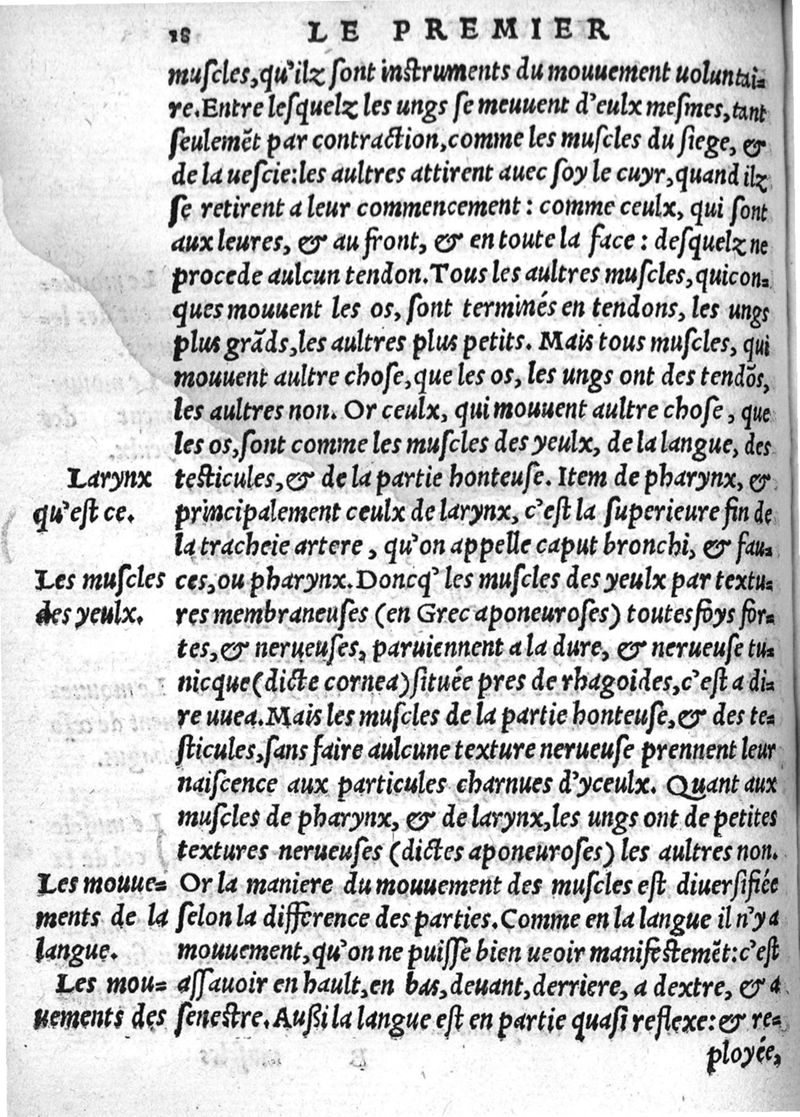 18 LE PREMIER
muſcles, qu'ilz ſont inſtruments du mouuement uoluntai-
re. Entre leſquelz les ungs ſe meuuent d'eulx meſmes, tant
ſeulemēt par contraction, comme les muſcles du ſiege, &
de la ueſcie: les aultres attirent auec ſoy le cuyr, quand ilz
ſe retirent a leur commencement: comme ceulx, qui ſont
aux leures, & au front, & en toute la face: deſquelz ne
procede aulcun tendon. Tous les aultres muſcles, quicon-
ques mouuent les os, ſont terminés en tendons, les ungs
plus grāds, les aultres plus petits. Mais tous muſcles, qui
mouuent aultre choſe, que les os, les ungs ont des tendōs,
les aultres non. Or ceulx, qui mouuent aultre choſe, que
les os, ſont comme les muſcles des yeulx, de la langue, des
Larynx
qu'eſt ce.
teſticules, & de la partie honteuſe. Item de pharynx, &
principalement ceulx de larynx, c'eſt la ſuperieure fin de
la tracheie artere, qu'on appelle caput bronchi, & fau-
Les muſcles
des yeulx.
ces, ou pharynx. Doncq' les muſcles des yeulx par textu-
res membraneuſes (en Grec aponeuroſes) toutesfoys for-
tes, & nerueuſes, paruiennent a la dure, & nerueuſe tu-
nicque (dicte cornea) ſituée pres de rhagoides, c'eſt a di-
re uuea. Mais les muſcles de la partie honteuſe, & des te-
ſticules, ſans faire aulcune texture nerueuſe prennent leur
naiſcence aux particules charnues d'yceulx. Quant aux
muſcles de pharynx, & de larynx, les ungs ont de petites
textures nerueuſes (dictes aponeuroſes) les aultres non.
Les mouue-
ments de la
langue.
Or la maniere du mouuement des muſcles eſt diuerſifiée
ſelon la difference des parties. Comme en la langue il n'y a
mouuement, qu'on ne puiſſe bien ueoir manifeſtemēt: c'eſt
Les mou-
uements des
aſſauoir en hault, en bas, deuant, derriere, a dextre, & a
ſeneſtre. Auſſi la langue eſt en partie quaſi reflexe: & re-
ployée,